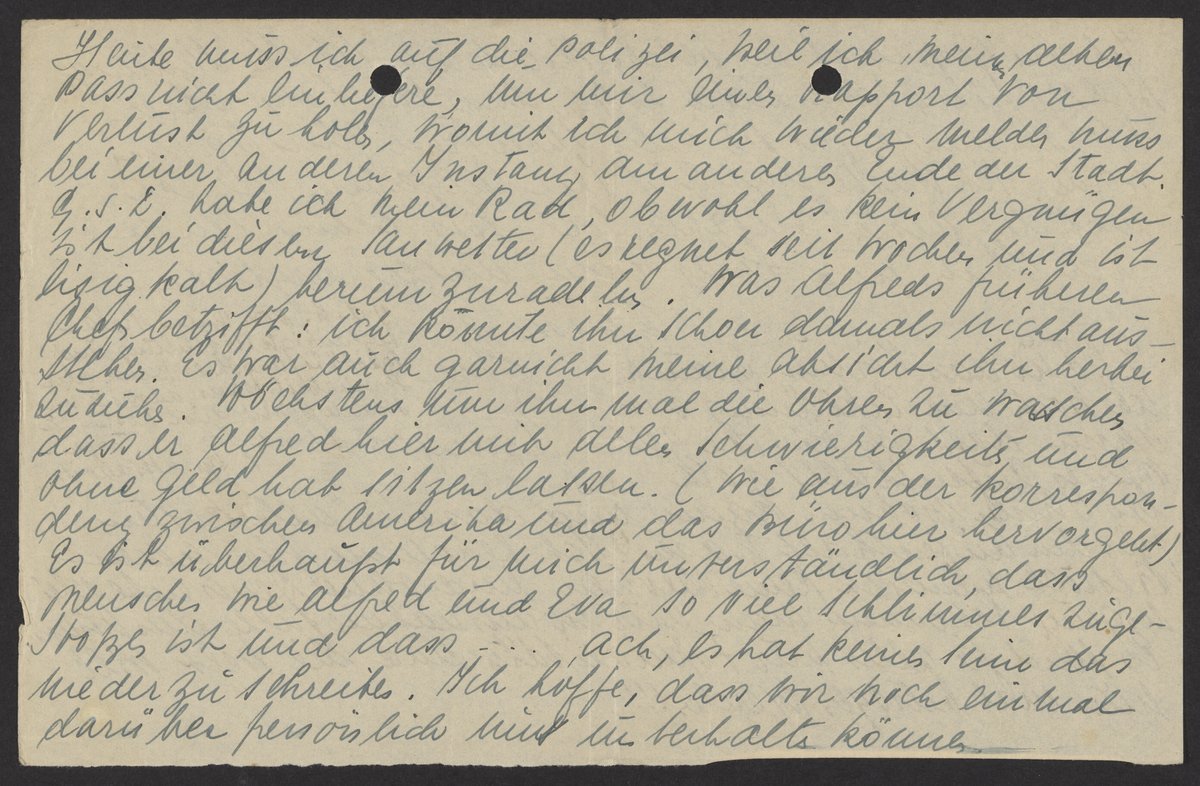 Heute muss ich auf die Polizei, weil ich meinen alten
Pass nicht einliefere, um mir einen Rapport von
Verlust zu holen, womit ich mich wieder melden muss
bei einer anderen Instanz am anderen Ende der Stadt.
G.s.D. habe ich mein Rad, obwohl es kein Vergnügen
ist bei diesem Sauwetter (es regnet seit Wochen und ist
eisig kalt) herumzuradeln. Was Alfreds früheren
Chef betrifft: ich konnte ihn schon damals nicht aus-
stehen. Es war auch garnicht meine absicht ihn herbei
zuziehen. Höchstens um ihm mal die Ohren zu waschen
dass er Alfred hier mit allen Schwierigkeiten und
ohne Geld hat sitzen lassen. (Wie aus der Korrespon-
denz zwischen Amerika und das Büro hier hervorgeht)
Es ist überhaupt für mich unverständlich, dass
Menschen wie Alfred und Eva so viel Schlimmes zuge-
stossen ist und dass .... ach, es hat keinen Sinn das
niederzuschreiben. Ich hoffe, dass wir noch einmal
darüber persönlich uns unterhalten können.